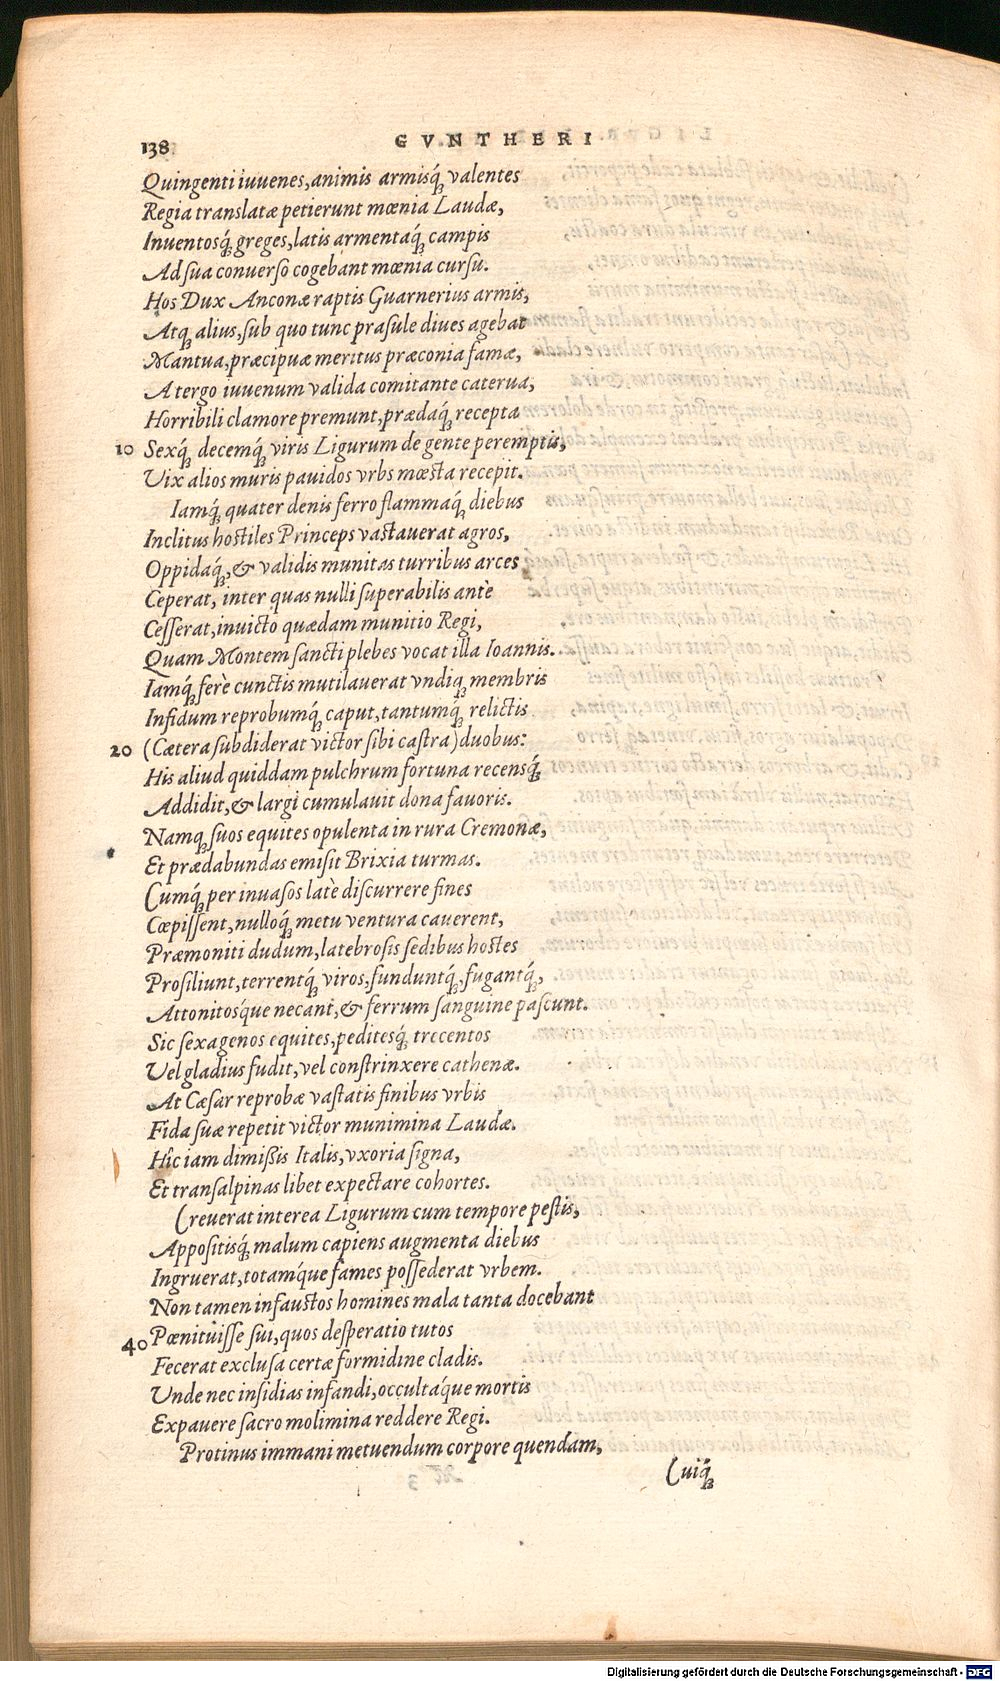 138 GVNTHERI
Quingenti iuuenes, animis armisq́; valentes
Regia translatæ petierunt mœnia Laudæ,
Inuentosq́; greges, latis armentaq́; campis
Ad sua conuerso cogebant mœnia cursu.
Hos Dux Anconæ raptis Guarnerius armis,
Atq; alius, sub quo tunc præsule diues agebat
Mantua, præcipuæ meritus præconia famæ,
A tergo iuuenum valida comitante caterua,
Horribili clamore premunt, prædaq́; recepta
10 Sexq́; decemq́; viris Ligurum de gente peremptis,
Vix alios muris pauidos vrbs mœsta recepit.
Iamq́; quater denis ferro flammaq́; diebus
Inclitus hostiles Princeps vastauerat agros,
Oppidaq́;, & validis munitas turribus arces
Ceperat, inter quas nulli superabilis antè
Cesserat, inuicto quædam munitio Regi,
Quam Montem sancti plebes vocat illa Ioannis.
Iamq́; ferè cunctis mutilauerat vndiq; membris
Infidum reprobumq́; caput, tantumq́; relictis
20 (Cætera subdiderat victor sibi castra) duobus:
His aliud quiddam pulchrum fortuna recensq́;
Addidit, & largi cumulauit dona fauoris.
Namq; suos equites opulenta in rura Cremonæ,
Et prædabundas emisit Brixia turmas.
Cumq́; per inuasos latè discurrere fines
Cœpissent, nulloq́; metu ventura cauerent,
Præmoniti dudum, latebrosis sedibus hostes
Prosiliunt, terrentq́; viros, funduntq́;, fugantq́;,
Attonitosq́ue necant, & ferrum sanguine pascunt.
Sic sexagenos equites, peditesq́; trecentos
Vel gladius fudit, vel constrinxere cathenæ.
At Cæsar reprobæ vastatis finibus vrbis
Fida suæ repetit victor munimina Laudæ.
Hîc iam dimißis Italis, vxoria signa,
Et transalpinas libet expectare cohortes.
Creuerat interea Ligurum cum tempore pestis,
Appositisq́; malum capiens augmenta diebus
Ingruerat, totamq́ue fames possederat vrbem.
Non tamen infaustos homines mala tanta docebant
40 Pœnituisse sui, quos desperatio tutos
Fecerat exclusa certæ formidine cladis.
Vnde nec insidias infandi, occultaq́ue mortis
Expauere sacro molimina reddere Regi.
Protinus immani metuendum corpore quendam,
Cuiq́;
Digitalisierung gefördert durch die Deutsche Forschungsgemeinschaft - DFG